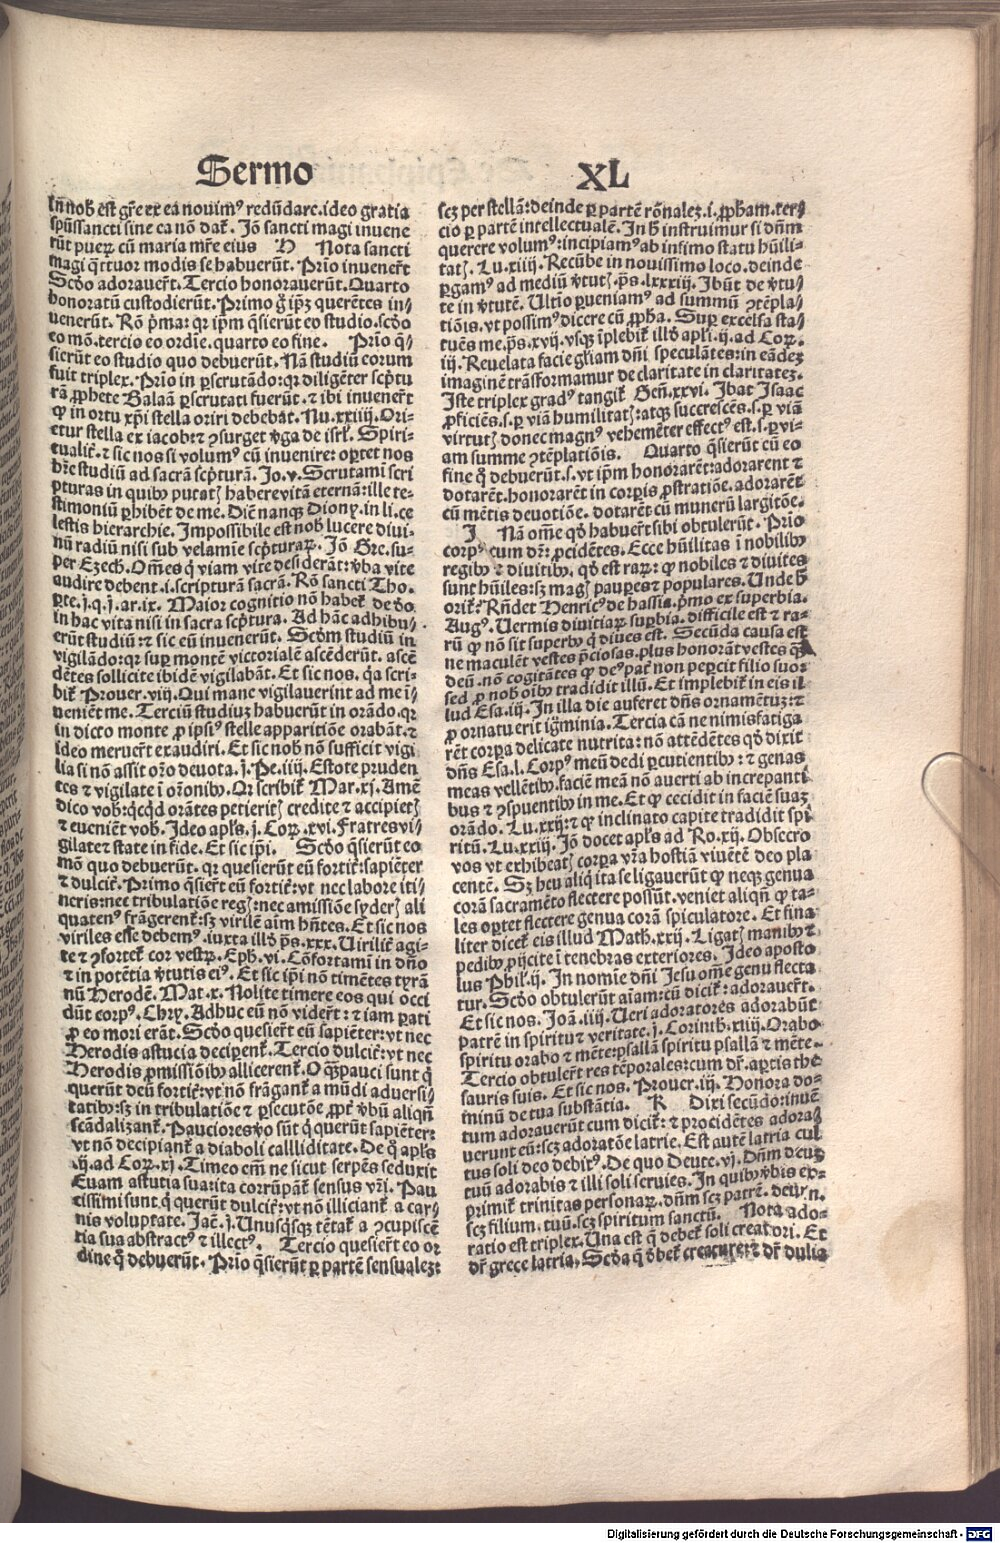 Sermo XL
in nob̄ est gr̄e ex ea nouimꝰ redūdare.ideo gratia
spūssancti sine ea nō dat̄. Jō sancti magi inuene
rūt pueꝝ cū maria mr̄e eius H Nota sancti
magi q̄ttuor modis se habuerūt. Prīo inuenert̄
Scd̄o adorauert̄. Tercio honorauerūt. Quarto
honoratū custodierūt. Primo g̊ ip̄ʒ querētes in⸗
uenerūt. Rō p̄ma: qr ip̄m q̄sierūt eo studio.scd̄o
eo mō.tercio eo ordīe.quarto eo fine. Prīo q̄⸗
sierūt eo studio quo debuerūt. Nā studiū eorum
fuit triplex. Prīo in ꝑscrutādo:qr diligēter scp̄tu
rā ꝓphete Balaā ꝑscrutati fuerūt ⁊ ibi inuenert̄
ꝙ in ortu xp̄i stella oriri debebāt. Nu.xxiiij. Ori⸗
etur stella ex iacob:⁊ ꝯsurget v̄ga de isrl̄. Spiri⸗
tualit̄.⁊ sic nos si volumꝰ cū inuenire: oꝑtet nos
hr̄e studiū ad sacrā scp̄turā. Jo.v.Scrutamī scri
pturas in quibꝰ putatꝭ haberevitā eternā:ille te⸗
stimoniū ꝑhibēt de me. Diēnanqꝫ Diony.in li.ce
lestis hierarchie. Impossibile est nob̄ lucere diui⸗
nū radiū nisi sub velamīe scp̄turaꝝ. Jō Gre.su⸗
per Ezech. Om̄es q̄ viam vite desiderāt: v̄ba vite
audire debent.i.scripturam sacrā. Rō sancti Tho.
ꝑte.j.q.j.ar.ix. Maior cognitio nō habet̄ de deo
in hac vita nisi in sacra scp̄tura. Ad hāc adhibu⸗
erūt studiū:⁊ sic eū inuenerūt. Scd̄m studiū in
vigilādo:qr suꝑ montē victorialē ascēderūt. ascē
dētes sollicite ibidē vigilabāt. Et sic nos. qa scri⸗
bit̄ Prouer.viij. Qui mane vigilauerint ad me ī⸗
ueniēt me. Terciū studiuʒ habuerūt in orādo.qr
in dicto monte ꝑ ipsiꝰ stelle apparitiōe orabāt.⁊
ideo meruert̄ exaudiri. Et sic nob̄ nō sufficit vigi
lia si nō assit or̄o deuota. j. Pe.iiij. Estote pruden
tes ⁊ vigilate ī or̄onibꝰ. Qr scribit̄ Mar.xj. Amē
dico vob̄:qcq̄d orātes petieritꝭ credite ⁊ accipietꝭ
⁊ eueniēt vob̄. Ideo apl̄s.j. Coꝝ.xvi. Fratresvi⸗
gilate⁊ state in fide. Et sic ip̄i. Scd̄o q̄sierūt eo
mō quo debuerūt. qr quesierūt eū fortit̄:sapiēter
⁊ dulcit̄. Primo q̄siert̄ eū fortit̄:vt nec labore iti⸗
neris:nec tribulatiōe regꝭ:nec amissiōe syderꝭ ali
quatenꝰ frāgerent̄:sʒ virilē aīm hn̄tes. Et sic nos
viriles esse debemꝰ.iuxta illd̄ ps̄.xxx. Uirilit̄ agi⸗
te ⁊ ꝯfortet̄ cor vestꝝ. Eph.vi. Cōfortamī in dn̄o
⁊ in potētia v̄tutis eiꝰ. Et sic ip̄i nō timētes tyrā
nū Herodē. Mat.x. Nolite timere eos qui occi
dūt corpꝰ. Chry. Adhuc eū nō vidert̄: ⁊ iam ꝑati
ꝓ eo mori erāt. Scd̄o quesiert̄ eū sapiēter:vt nec
Herodis astucia deciꝑent̄. Tercio dulcit̄:vt nec
Herodis ꝓmissiōibꝰ allicerent̄. O q̄ꝫpauci sunt q̄
querūt deū fortit̄:vt nō frāgant̄ a mūdi aduersi⸗
tatibꝰ:sʒ in tribulatiōe ⁊ ꝑsecutōe ꝓpt̄ v̄bū aliqn̄
scādalizant̄. Paucioresv̊o sūt q̄ querūt sapiēter:
vt nō decipiant̄ a diaboli calliditate. De q̄ apl̄s
.ij.ad Coꝝ.xj. Timeo em̄ ne sicut serpēs seduxit
Euam astutia sua:ita corrūpāt̄ sensus vr̄i. Pau
cissimi sunt q̄ querūt dulcit̄:vt nō illiciant̄ a car⸗
nis voluptate. Jac̄.j. Unusqͥsqꝫ tētat̄ a ꝯcupiscē
tia sua abstractꝰ ⁊ illectꝰ. Tercio quesiert̄ eo or
dine q̄ debuerūt. Prīo q̄sierūt ꝑ partē sensualeʒ:
scʒ per stellā:deinde ꝑ partē rōnaleʒ.i.ꝓpham.ter⸗
cio ꝑ partē intellectualē. In h̄ instruimur si dn̄m
querere volumꝰ:incipiamꝰ ab infimo statu hūili⸗
tatꝭ. Lu.xiiij. Recūbe in nouissimo loco.deinde
ꝑgamꝰ ad mediū v̄tutꝭ.ps̄.lxxxiij. Ibūt de v̄tu⸗
te in v̄tutē. Ultīo ꝑueniamꝰ ad summū ꝯtēpla⸗
tiōis.vt possimꝰ dicere cū ꝓpha. Suꝑ excelsa sta⸗
tuēs me.ps̄.xvij.vsqꝫ īplebit̄ illd̄ apl̄i.ij.ad Coꝝ.
iij. Reuelata facie gl̄iam dn̄i speculātes:in eādeʒ
imaginē trāsformamur de claritate in claritateʒ.
Iste triplex gradꝰ tangit̄ Gen̄.xxvi. Ibat Isaac
ꝓficiēs.s.ꝑ viā humilitatꝭ:atqꝫ succrescēs.s.ꝑ viā
virtutꝭ donec magnꝰ vehemēter effectꝰ est.s.ꝑ vi⸗
am summe ꝯtēplatiōis. Quarto q̄sierūt cū eo
fine q̊ debuerūt.s.vt ip̄m honorarēt:adorarent ⁊
dotarēt.honorarēt in corꝑis ꝓstratiōe.adorarēt
cū mētis deuotiōe. dotarēt cū munerū largitōe.
I Nā om̄e qd̄ habuert̄ sibi obtulerūt. Prīo
corpꝰ cum dr̄:ꝓcidētes. Ecce hūilitas ī nobilibꝰ
regibꝰ ⁊ diuitibꝰ. qd̄ est raꝝ: ꝙ nobiles ⁊ diuites
sunt hūiles:sʒ magꝭ pauꝑes ⁊ populares. Unde h̄
orit̄? Rn̄det Henricꝰ de hassia. p̄mo ex superbia.
Augꝰ. Uermis diuitiaꝝ suꝑbia. difficile est ⁊ ra⸗
rū ꝙ nō sit superbꝰ q̄ diues est. Secūda causa est
ne maculēt vestes p̄ciosas.plus honorāt vestes q̄ꝫ
deū.nō cogitātes ꝙ deꝰ pat̄ non peꝑcit filio suo:
sed ꝓ nob̄ oībꝰ tradidit illū. Et implebit̄ in eis il
lud Esa.iij. In illa die auferet dn̄s ornamētuʒ:⁊
ꝓ ornatu erit ignīminia. Tercia cā ne nimis fatiga
rēt corꝑa delicate nutrita: nō attēdētes qd̄ dixit
dn̄s Esa.l. Corpꝰ meū dedi ꝑcutientibꝰ:⁊ genas
meas vellētibꝰ.faciē meā nō auerti ab increpanti
bus ⁊ ꝯspuentibꝰ in me. Et ꝙ cecidit in faciē suaʒ
orādo. Lu.xxij:⁊ ꝙ inclinato capite tradidit spi
ritū. Lu.xxiij. Jō docet apl̄s ad Ro.xij. Obsecro
vos vt exhibeatꝭ corꝑa vr̄a hostiā viuētē deo pla
centē. Sʒ heu aliq̄ ita se ligauerūt ꝙ neqꝫ genua
corā sacramēto flectere possūt.veniet aliqn̄ ꝙ ta⸗
les oꝑtet flectere genua corā spiculatore. Et fina
liter dicet̄ eis illud Math.xxij. Ligatꝭ manibꝰ ⁊
pedibꝰ ꝓijcite ī tenebras exteriores. Ideo aposto
lus Phil̄.ij. In nomīe dn̄i Jesu om̄e genu flecta
tur. Scd̄o obtulerūt aīam:cū dicit̄: adorauert̄.
Et sic nos. Joā.iiij. Ueri adoratores adorabūt
patrē in spiritu ⁊ veritate.j. Corinth.xiiij. Orabo
spiritu orabo ⁊ mēte:psallā spiritu psallā ⁊ mēte.
Tercio obtulert̄ res tēporales:cum dr̄.aꝑtis the
sauris suis. Et sic nos. Prouer.iij. Honora do⸗
minū de tua substātia. K Dixi secūdo:inuē
tum adorauerūt cum dicit̄: ⁊ procidētes adora⸗
uerunt eū:scʒ adoratōe latrie. Est autē latria cul
tus soli deo debitꝰ. De quo Deute.vj. Dn̄m deuʒ
tuū adorabis ⁊ illi soli seruies. In quibꝰ v̄bis ex⸗
primit̄ trinitas personaꝝ. dn̄m scʒ patrē. deum.
scʒ filium. tuū.scʒ spiritum sanctū. Nota ado⸗
ratio est triplex. Una est q̄ debet̄ soli creatori. Et
dr̄ grece latria. Scd̄a q̄ dēbet̄ creature:⁊ dr̄ dulia
Digitalisierung gefördert durch die Deutsche Forschungsgemeinschaft - DFG